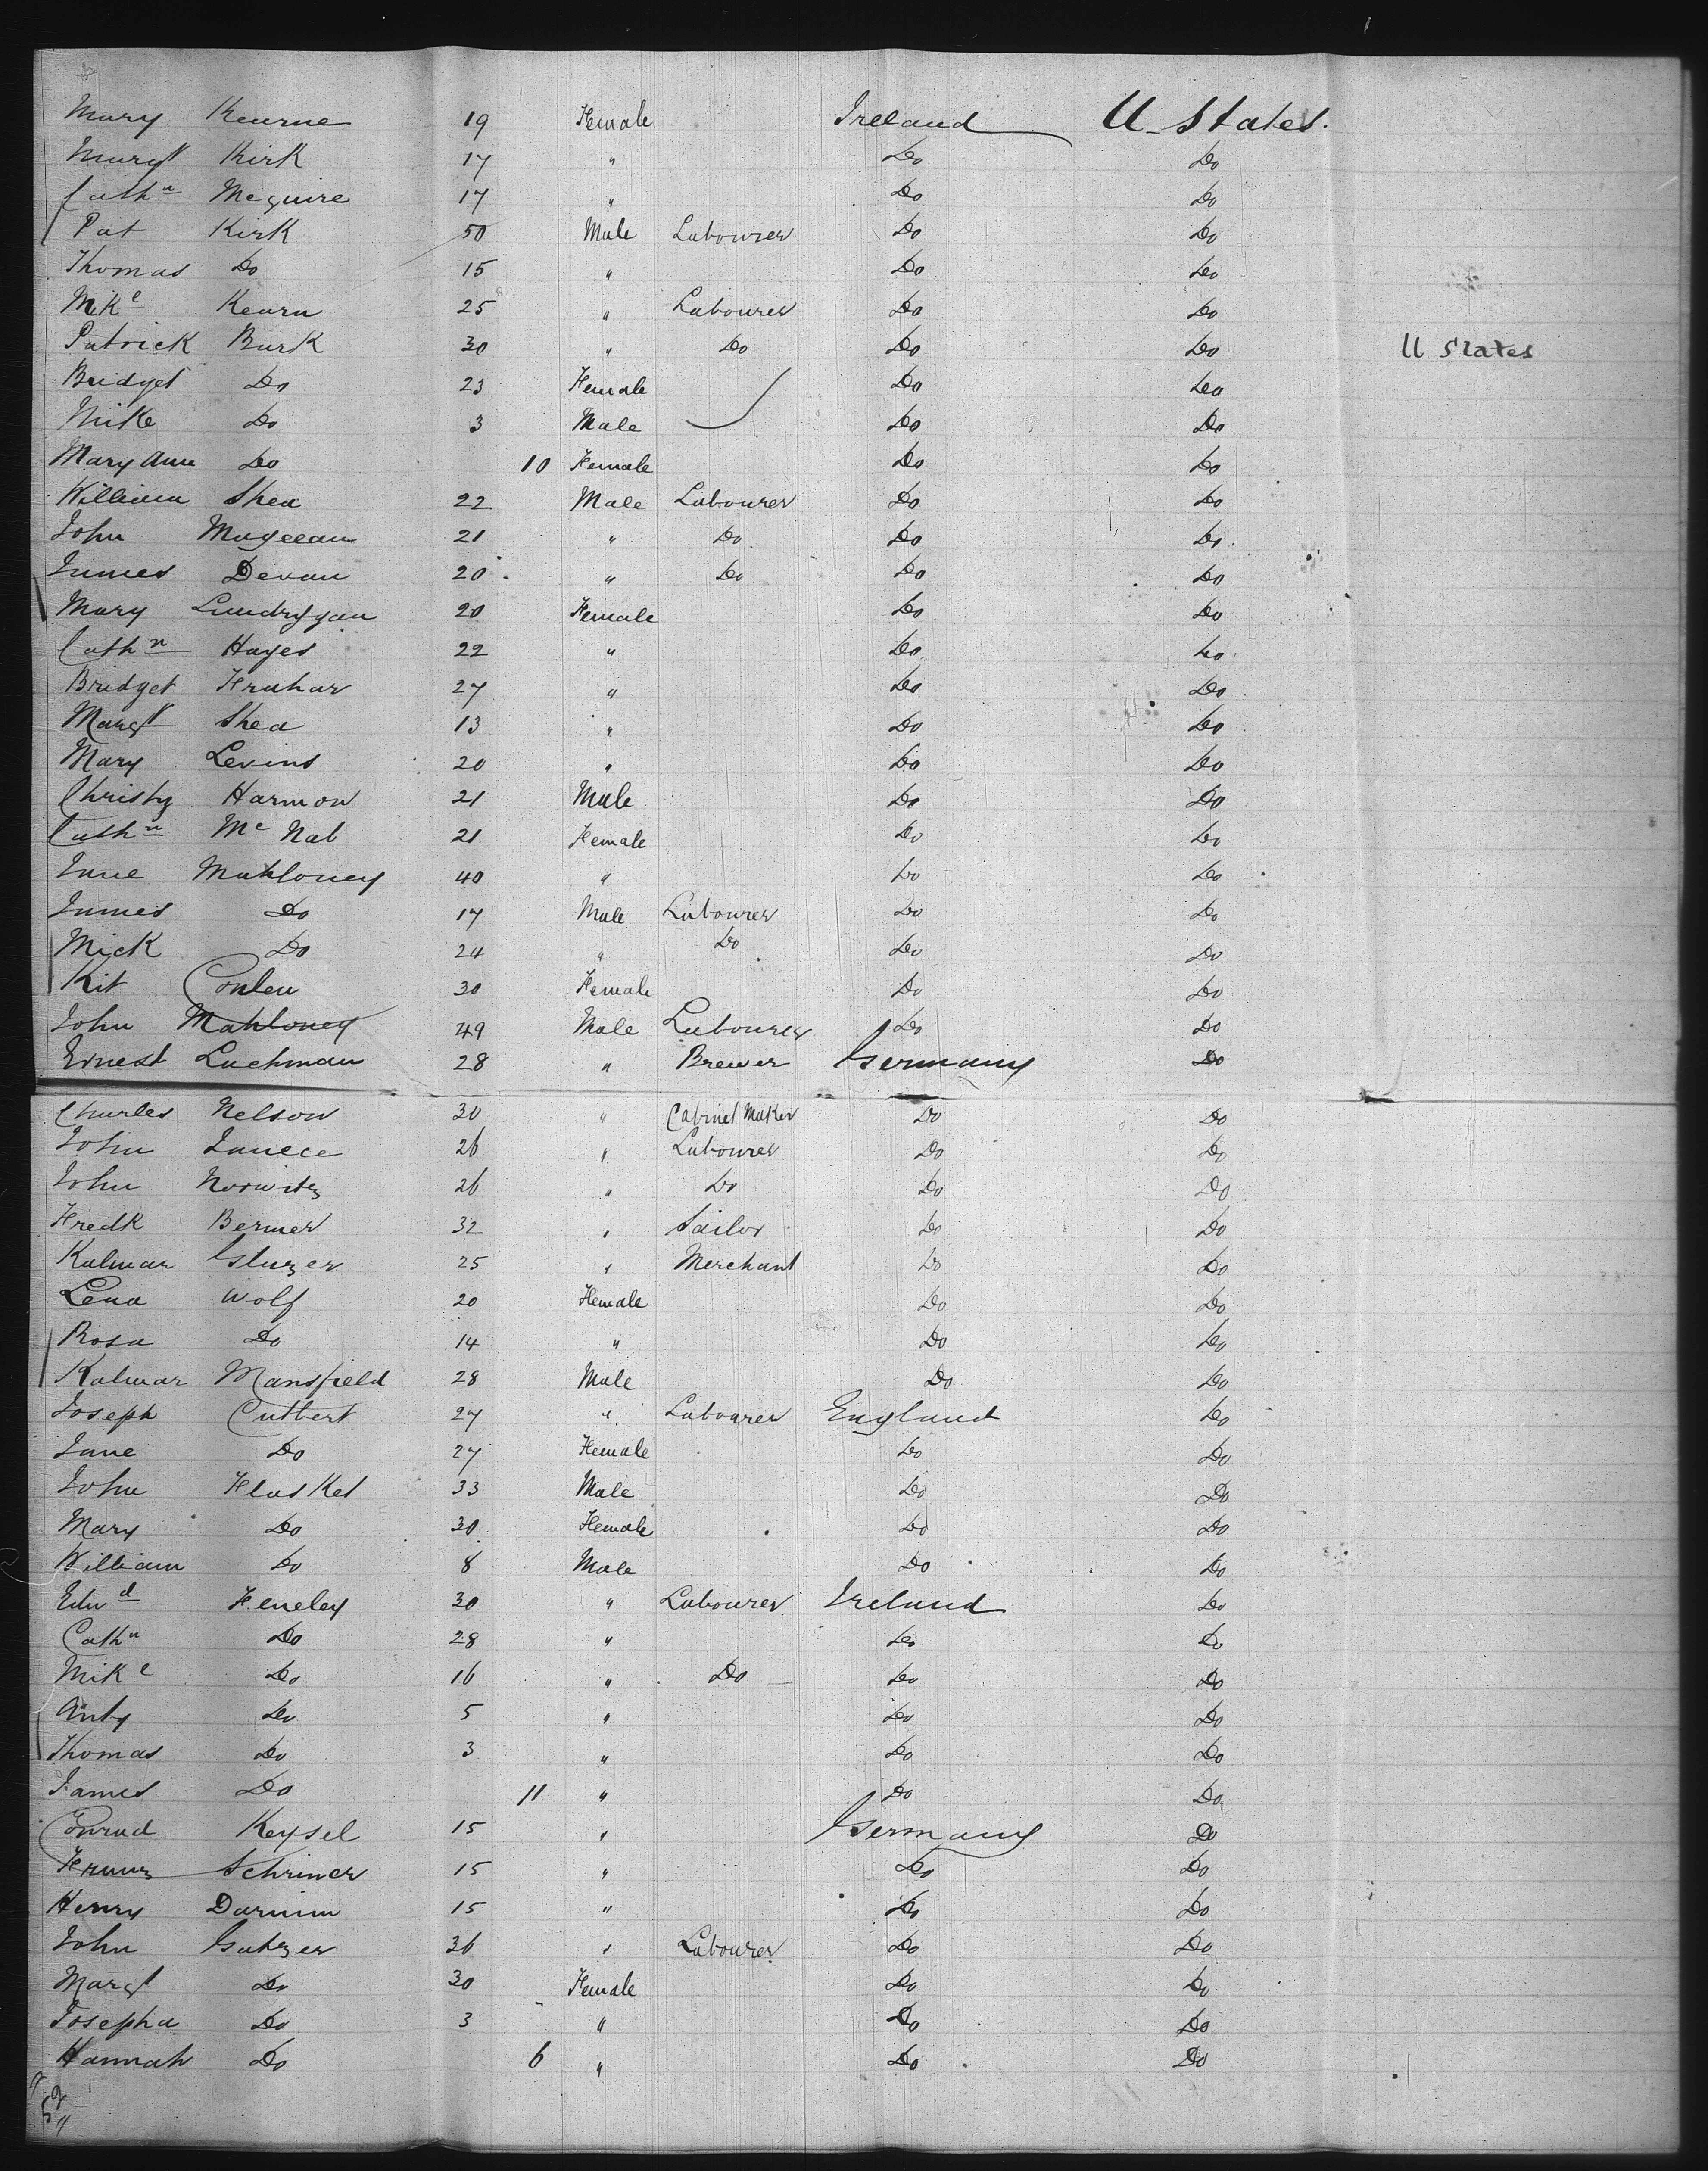 Mary Kearne 19 Female Ireland U. States.
Margt Kirk 17 " Do Do
Cathn McGuire 17 " Do Do
Pat Kirk 50 Male Labourer Do Do
Thomas Do 15 " Do Do
Mike Kearn 25 " Labourer Do Do
Patrick Burk 30 " Do Do Do U States
Bridget Do 23 Female Do Do
Mike Do 3 Male Do Do
Mary Ann Do 10 Female Do Do
William Shea 22 Male Labourer Do Do
John Mageean 21 " Do Do Do
James Devan 20 " Do Do Do
Mary Lundrygan 20 Female Do Do
Cathn Hayes 22 " Do Do
Bridget Frahar 27 " Do Do
Margt Shea 13 " Do Do
Mary Levins 20 " Do Do
Christy Harmon 21 Male Do Do
Cathn Mc Nab 21 Female Do Do
Jane Mahloney 40 " Do Do
James Do 17 Male Labourer Do Do
Mick Do 24 " Do Do Do
Kit Conlen 30 Female Do Do
John Mahloney 49 Male Labourer Do Do
Ernest Lachman 28 " Brewer Germany Do
Charles Nelson 30 " Cabinet Maker Do Do
John Janece 26 " Labourer Do Do
John Norwitz 26 " Do Do Do
Fredk Bermer 32 " Sailor Do Do
Kalmar Glazer 25 " Merchant Do Do
Lena Wolf 20 Female Do Do
Rosa Do 14 " Do Do
Kalmar Mansfield 28 Male Do Do
Joseph Cutbert 27 " Labourer England Do
Jane Do 27 Female Do Do
John Flasket 33 Male Do Do
Mary Do 30 Female Do Do
William Do 8 Male Do Do
Edwd Feneley 30 " Labourer Ireland Do
Cathn Do 28 " Do Do
Mike Do 16 " Do Do Do
Anty Do 5 " Do Do
Thomas Do 3 " Do Do
James Do 11 " Do Do
Conrad Keysel 15 " Germany Do
Schriner 15 " Do Do
Henry Darnim 15 " Do Do
John Gatzer 36 " Labourer Do Do
Margt Do 30 Female Do Do
Josepha Do 3 " Do Do
Hannah Do 6 " Do Do